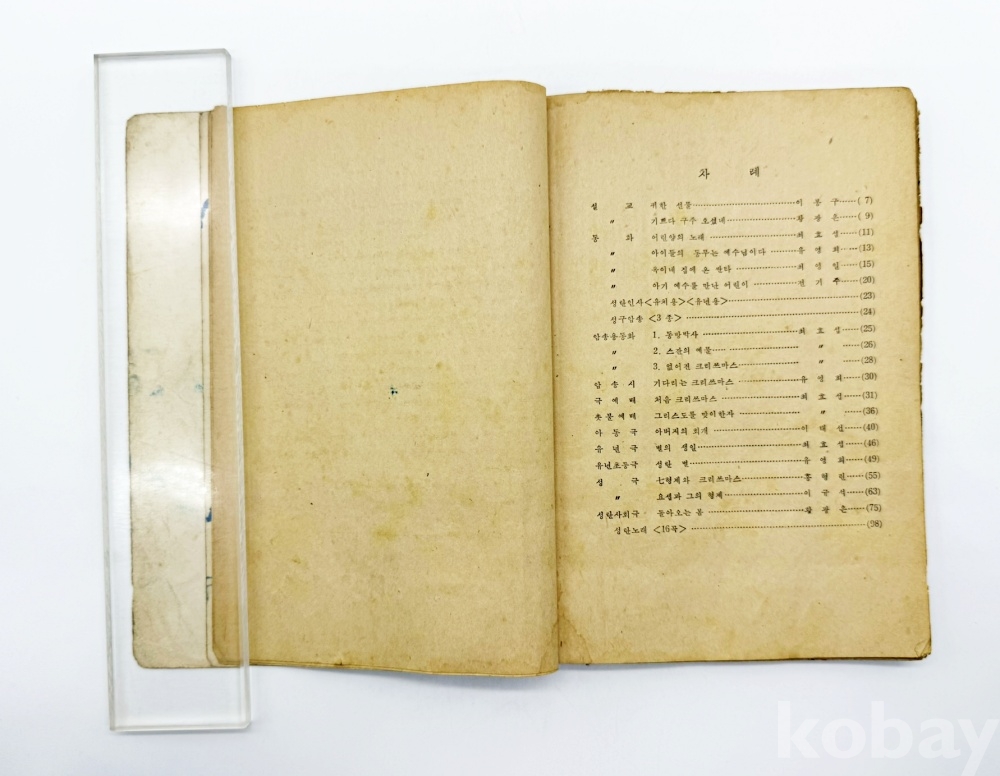 차 례
설 교 귀한 선물 이 동 구 ( 7)
〃 기쁘다 구주 오셨네 황 광 은 ( 9)
동 화 어린양의 노래 최 효 성 (11)
〃 아이들의 동무는 예수님이다 유 영 희 (13)
〃 옥이네 집에 온 싼타 최 영 일 (15)
〃 아기 예수를 만난 어린이 전 기 주 (20)
성탄인사<유치용><유년용> (23)
성구암송 <3 종> (24)
암송용동화 1. 동방박사 최 효 성 (25)
〃 2. 스잔의 예물 〃 (26)
〃 3. 없어진 크리쓰마스 〃 (28)
암 송 시 기다리는 크리쓰마스 유 영 희 (30)
극 예 배 처음 크리쓰마스 최 효 성 (31)
촛불예배 그리스도를 맞이한자 〃 (36)
아 동 극 아버지의 회개 이 태 선 (40)
유 년 극 별의 생일 최 효 성 (46)
유년초등극 성탄 별 유 영 희 (49)
성 극 七형제와 크리쓰마스 홍 현 민 (55)
〃 요셉과 그의 형제 이 국 석 (63)
성탄사회극 돌아오는 봄 황 광 은 (75)
성탄노래 <16곡> (98)
kobay